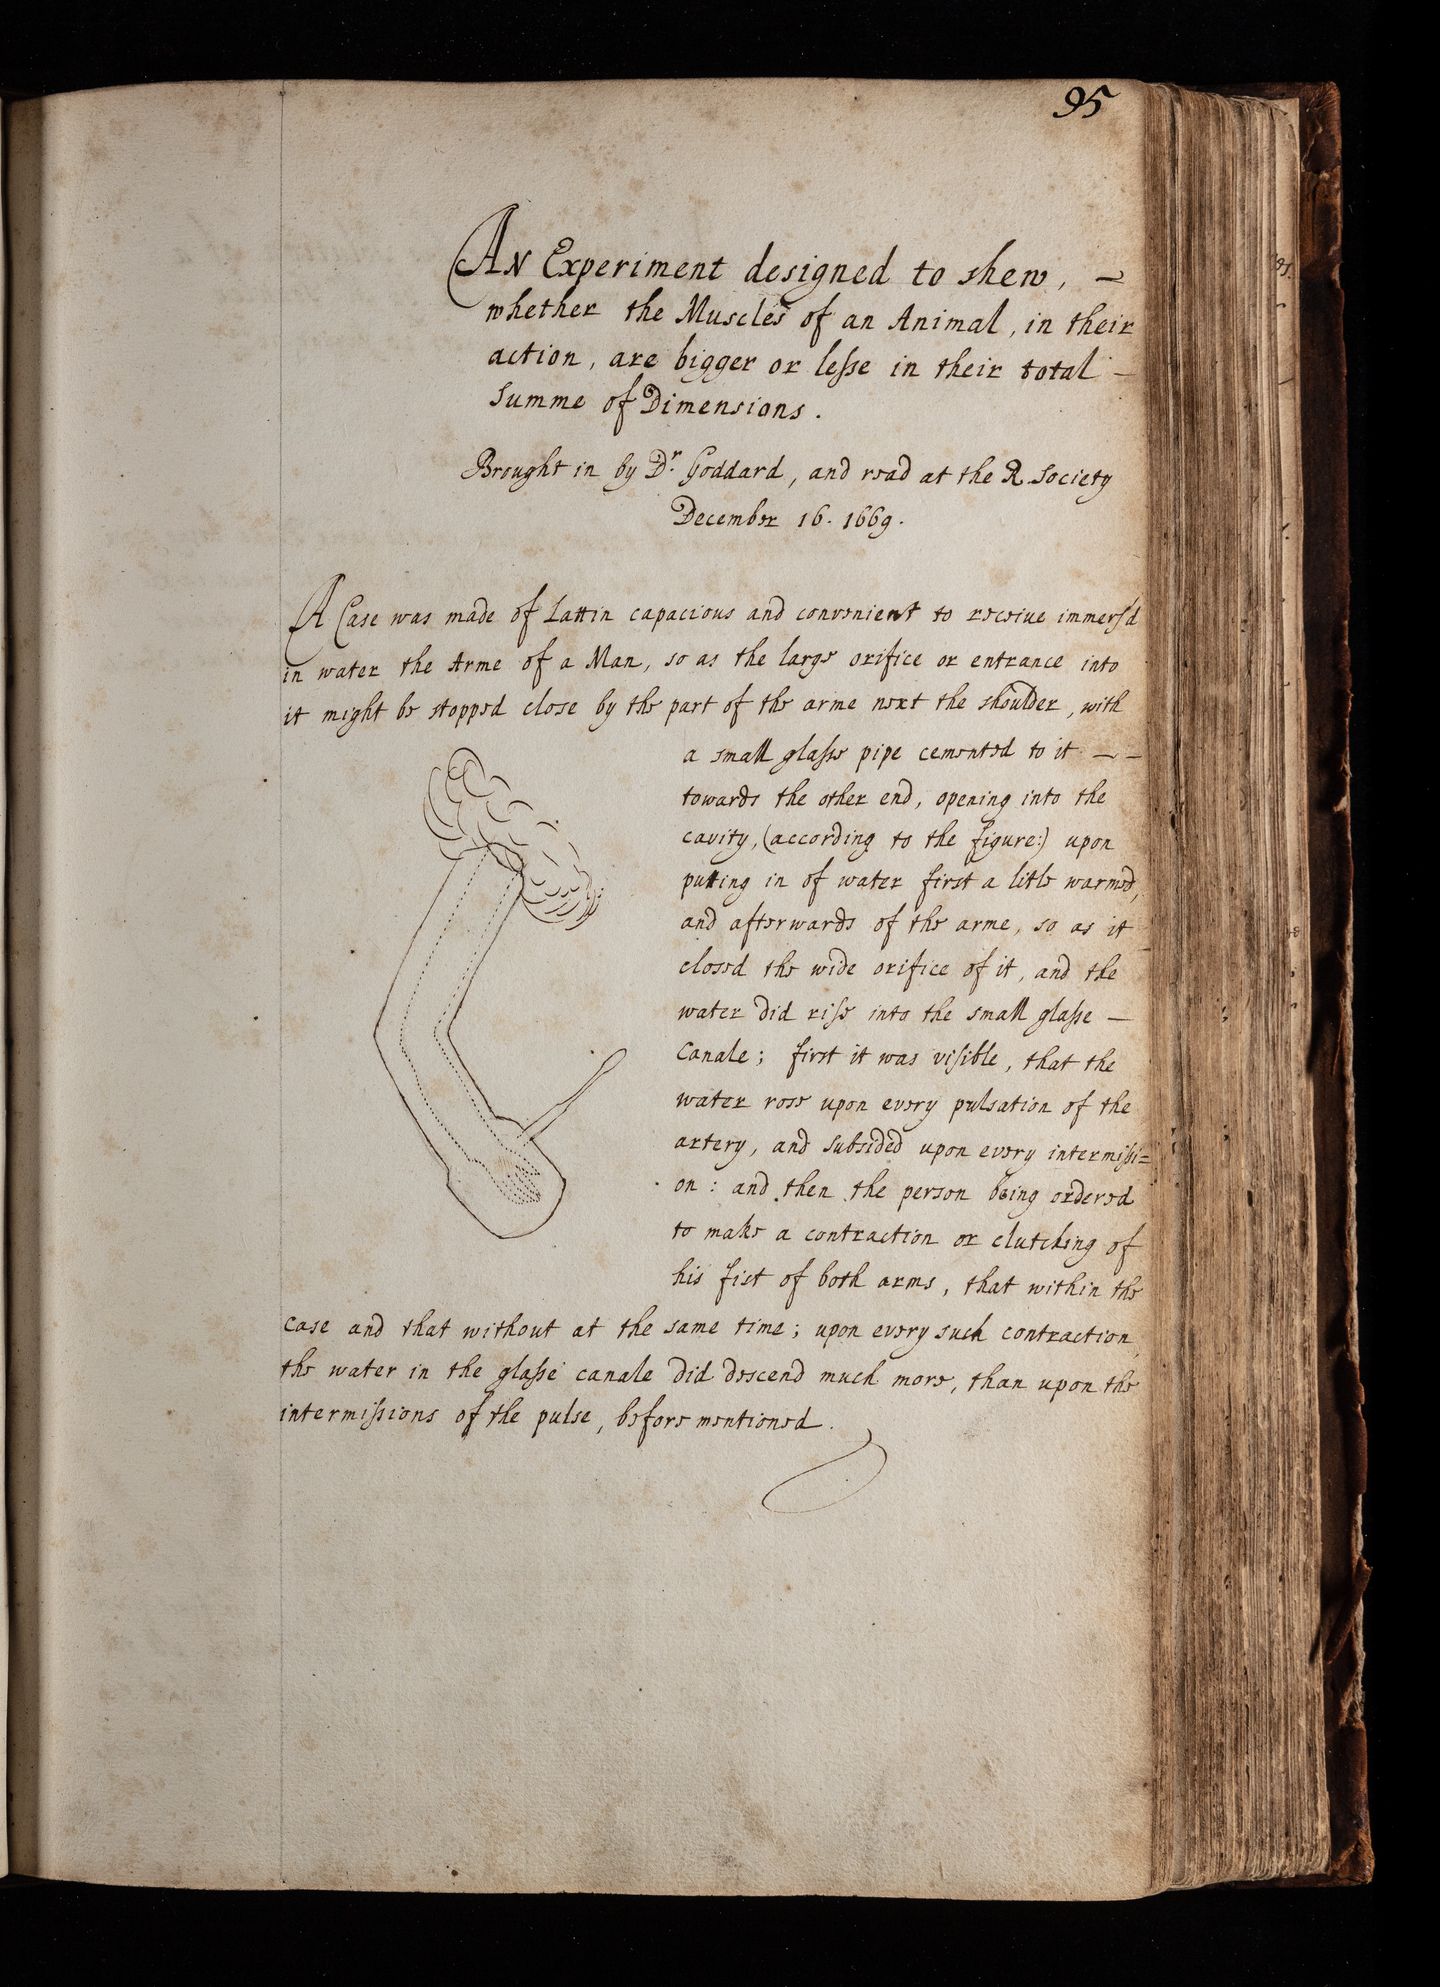 95
An Experiment designed to shew, —
whether the Muscles of an Animal, in their
action, are bigger or lesse in their total —
summe of Dimensions.
Brought in by Dr. Goddard, and read at the R. Society
December 16. 1669.
A Case was made of Lattin capacious and convenient to receive immers'd
in water the Arme of a Man, so as the large orifice or entrance into
it might be stopped close by the part of the arme next the shoulder, with
a small glasse pipe cemented to it — —
towards the other end, opening into the
cavity, (according to the figure:) upon
putting in of water first a litle warmed,
and afterwards of the arme, so as it
closed the wide orifice of it, and the
water did rise into the small glasse —
Canale; first it was visible, that the
water rose upon every pulsation of the
artery, and subsided upon every intermissi=
on: and then the person being ordered
to make a contraction or clutching of
his fist of both arms, that within the
case and that without at the same time; upon every such contraction,
the water in the glasse canale did descend much more, than upon the
intermissions of the pulse, before mentioned.